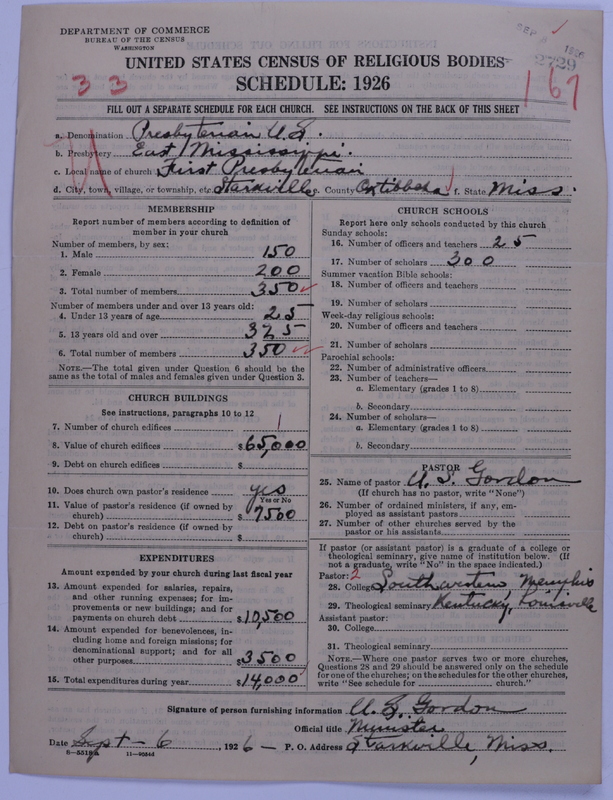 DEPARTMENT OF COMMERCE
BUREAU OF THE CENSUS
WASHINGTON
SEP
1926
2729
UNITED STATES CENSUS OF RELIGIOUS BODIES
SCHEDULE: 1926
33
167
FILL OUT A SEPARATE SCHEDULE FOR EACH CHURCH. SEE INSTRUCTIONS ON THE BACK OF THIS SHEET
a. Denomination Presbyterian U.S.
b. Presbytery East Mississippi
c. Local name of church First Presbyterian
d. City, town, village, or township, etc. Starkville e. County Oktibbeha f. State Miss.
MEMBERSHIP
Report number of members according to definition of
member in your church
Number of members, by sex:
1. Male 150
2. Female 200
3. Total number of members 350
Number of members under and over 13 years old:
4. Under 13 years of age 25
5. 13 years old and over 325
6. Total number of members 350
NOTE.—The total given under Question 6 should be
same as the total of males and females given under Question 3.
CHURCH BUILDINGS
See instructions, paragraphs 10 to 12
7. Number of church edifices 1
8. Value of church edifices $65,000
9. Debt on church edifices $
10. Does church own pastor's residence yes
Yes or No
11. Value of pastor's residence (if owned by
church) $7500
12. Debt on pastor's residence (if owned by
church) $
EXPENDITURES
Amount expended by your church during last fiscal year
13. Amount expended for salaries, repairs,
and other running expenses; for im-
provements or new buildings; and for
payments on church debt $10,500
14. Amount expended for benevolences, in-
cluding home and foreign missions; for
denominational support; and for all
other purposes $3500
15. Total expenditures during year $14,000
CHURCH SCHOOLS
Report here only schools conducted by this church
Sunday schools:
16. Number of officers and teachers 25
17. Number of scholars 300
Summer vacation Bible schools:
18. Number of officers and teachers
19. Number of scholars
Week-day religious schools:
20. Number of officers and teachers
21. Number of scholars
Parochial schools:
22. Number of administrative officers
23. Number of teachers—
a. Elementary (grades 1 to 8)
b. Secondary
24. Number of scholars—
a. Elementary (grades 1 to 8)
b. Secondary
PASTOR
25. Name of pastor U. S. Gordon
(If church has no pastor, write "None")
26. Number of ordained ministers, if any, em-
ployed as assistant pastors
27. Number of other churches served by the
pastor or his assistants
If pastor (or assistant pastor) is a graduate of a college or
theological seminary, give name of institution below. (If
not a graduate, write "No" in the space indicated.)
Pastor: 2
28. College Southwestern, Memphis
29. Theological seminary Kentucky, Louisville
Assistant pastor:
30. College
31. Theological seminary
NOTE.—Where one pastor serves two or more churches,
Questions 28 and 29 should be answered only on the schedule
for one of the churches; on the schedules for the other churches,
write "See schedule for church."
Signature of person furnishing information U. S. Gordon
Official title Minister
Date Sept-6, 1926— P. O. Address Starkville, Miss.
6—5518a 11—9584d